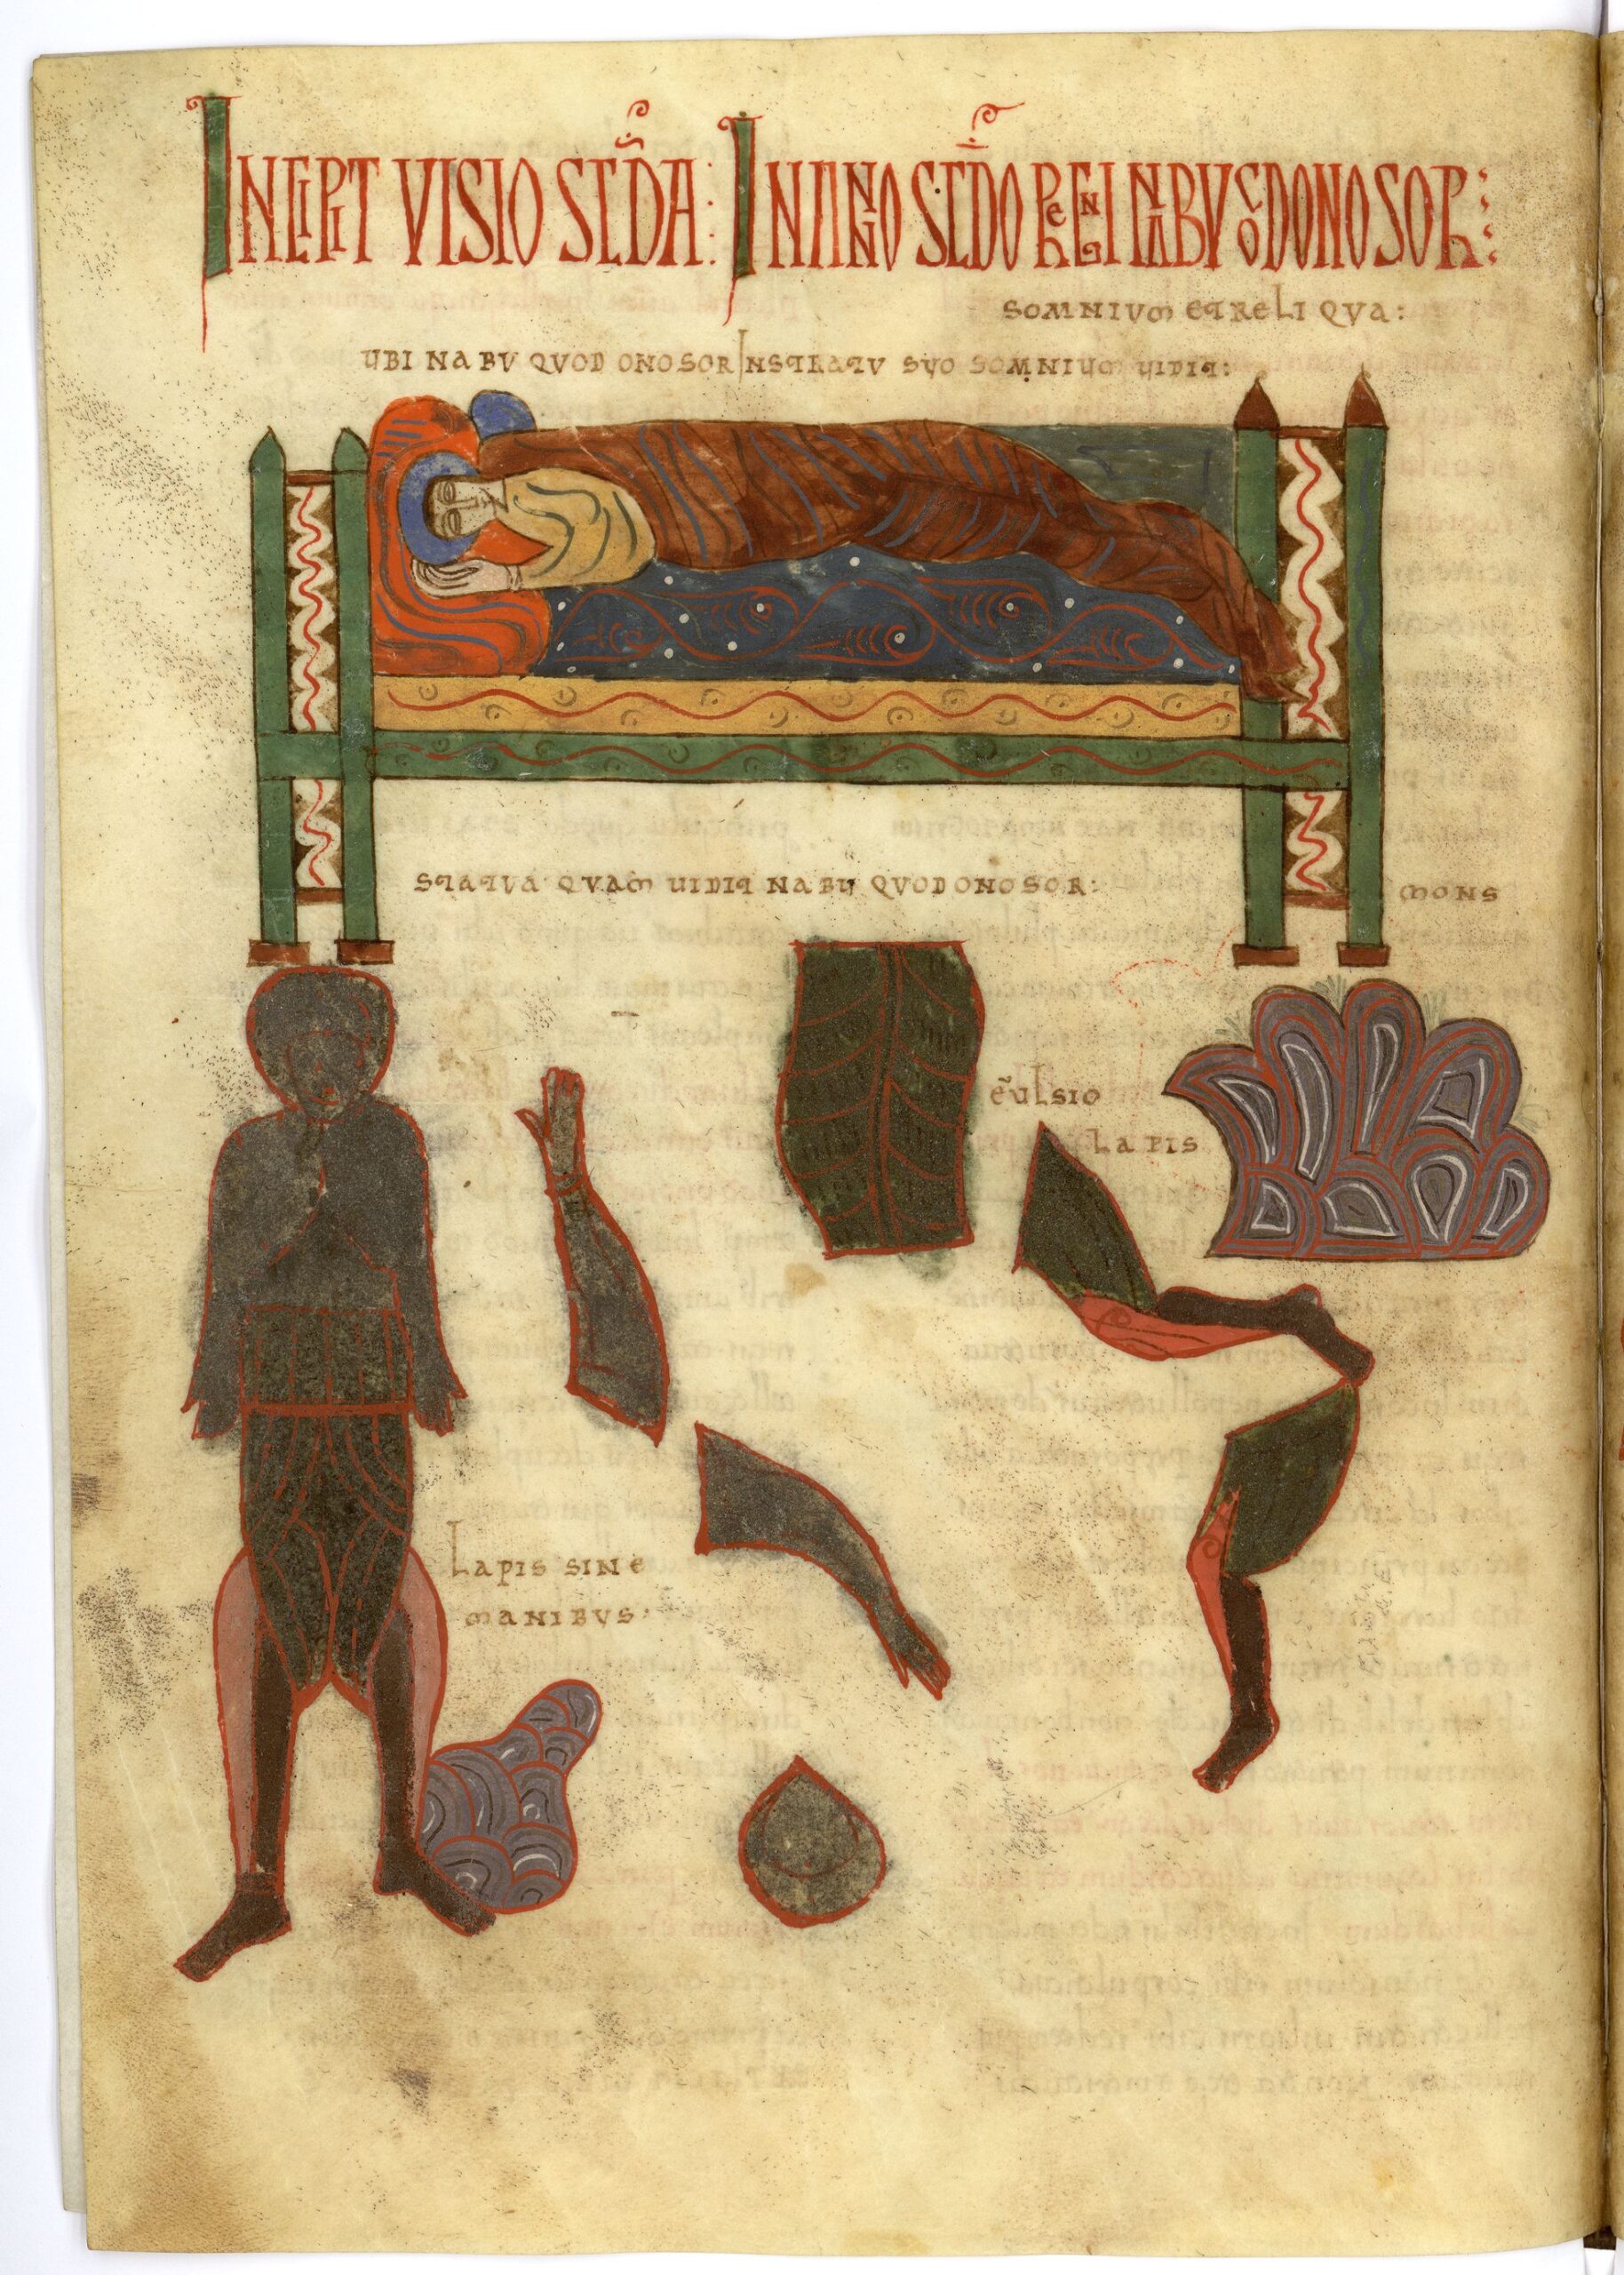 INCIPIT VISIO SCDA: IN ANNO SCDO REGNI NABVCODONOSOR:
SOMNIUM ET RELIQVA:
UBI NABVQVODONOSOR IN STRATV SVO SOMNIUM UIDIT:
STATVA QVAM UIDIT NABUQVODONOSOR:
MONS
EŪLSIO
LAPIS
LAPIS SINE
MANIBVS: